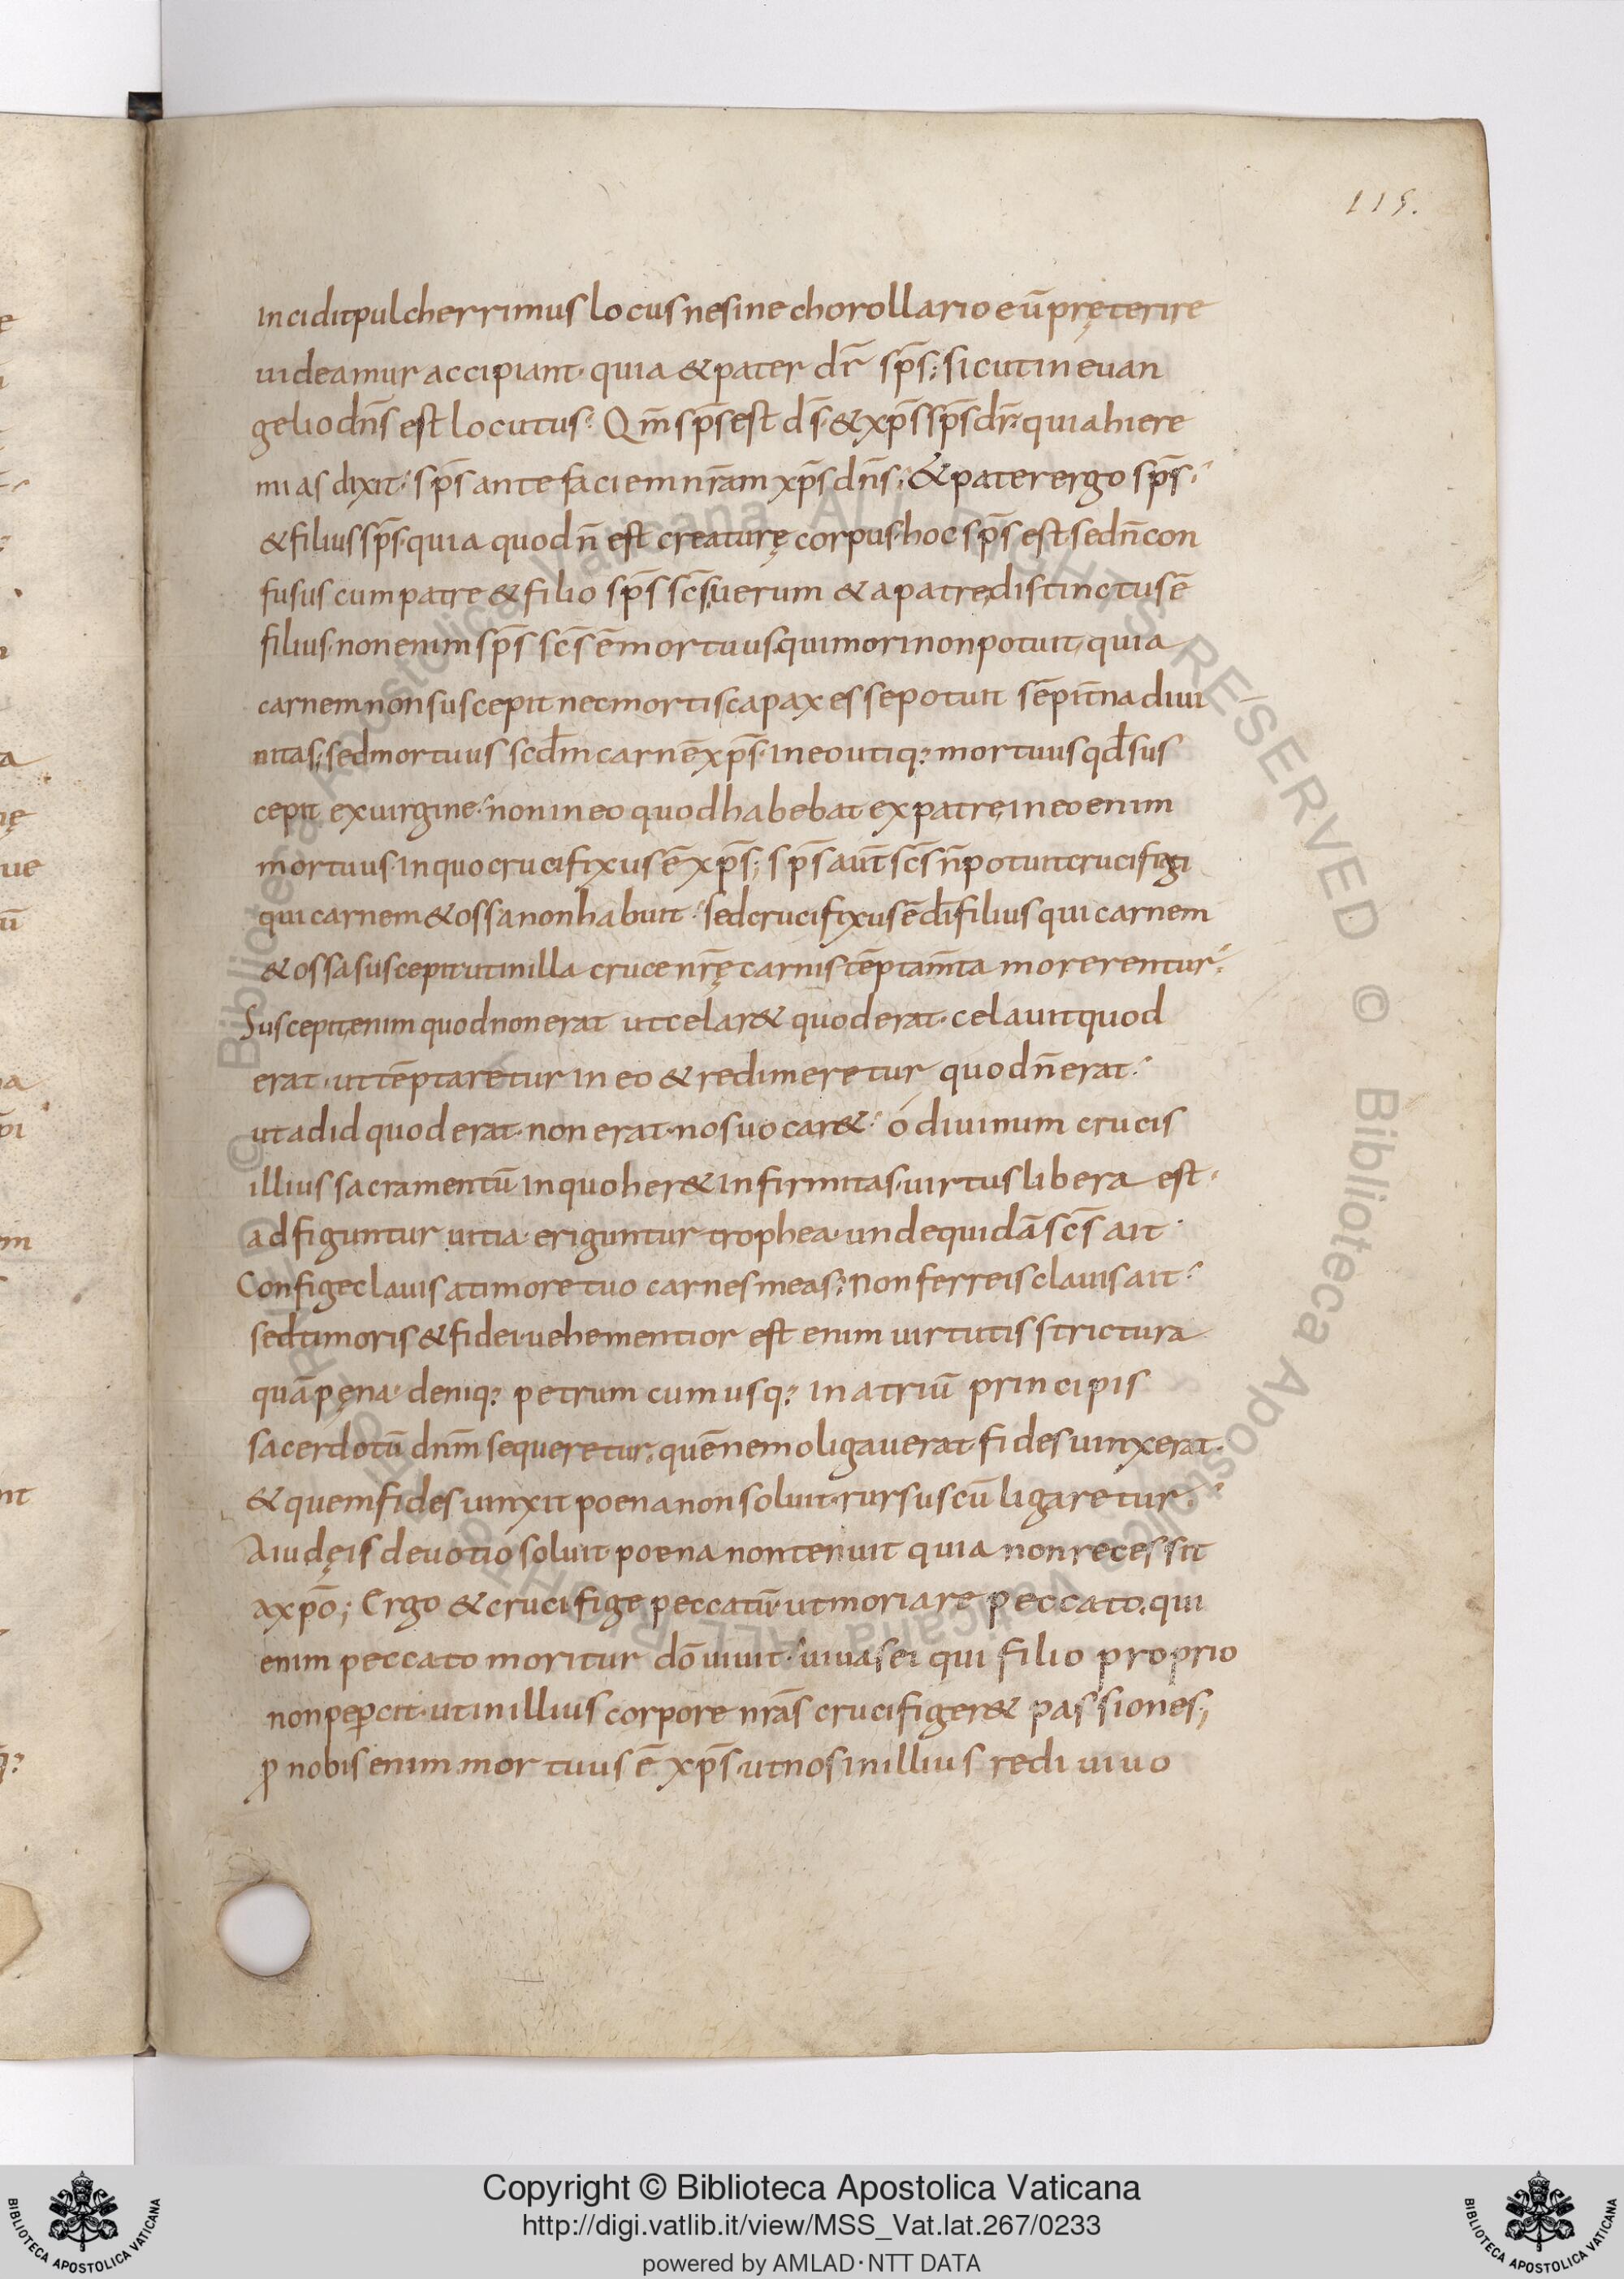 115.
incidit pulcherrimus locus ne sine chorollario eū pręterire
uideamur accipiant· quia & pater dr̄ sp̄s; sicut in euan
gelio dn̄s est locutus· Qm̄ sp̄s est d̄s· & xp̄s sp̄s dr̄· quia hiere
mias dixit· sp̄s ante faciem nr̄am xp̄s dn̄s; & pater ergo sp̄s·
& filius sp̄s· quia quod n̄ est creaturę corpus· hoc sp̄s est· sed n̄ con
fusus cum patre & filio sp̄s sc̄s, uerum & a patre distinctus ē
filius· non enim sp̄s sc̄s ē mortuus, qui mori non potuit, quia
carnem non suscepit nec mortis capax esse potuit sēpit̄na diui
nitas; sed mortuus scd̄m carnē xp̄s· in eo utiq; mortuus qd̄ sus
cepit ex uirgine· non in eo quod habebat ex patre, in eo enim
mortuus· in quo crucifixus ē xp̄s; sp̄s aut̄ sc̄s n̄ potuit crucifigi
qui carnem & ossa non habuit· sed crucifixus ē dī filius qui carnem
& ossa suscepit· ut in illa cruce nr̄ę carnis tēptam̄ta morerentur·
Suscepit, enim quod non erat ut celar& quod erat· celauit quod
erat· ut tēptaretur in eo & redimeretur quod n̄ erat·
ut ad id quod erat· non erat· nos uocar&· ó diuinum crucis
illius sacramentū in quo her& infirmitas· uirtus libera est·
adfiguntur uitia· eriguntur trophea· unde quidā sc̄s ait·
Confige clauis a timore tuo carnes meas; Non ferreis clauis ait·
sed timoris & fidei· uehementior est enim uirtutis strictura
quā pęna· deniq; petrum cum usq; in atriū principis
sacerdotū dnm̄ sequeretur, quē nemo ligauerat fides uinxerat·
& quem fides uinxit poena non soluit· rursus cū ligaretur·
A iudęis deuotio soluit poena non tenuit quia non recessit
a xp̄o; Ergo & crucifige peccatū ut moriare peccato, qui
enim peccato moritur dō uiuit· uiuas ei qui filio proprio
non peꝑcit· ut in illius corpore nr̄as crucifiger& passiones;
ꝓ nobis enim mortuus ē xp̄s· ut nos in illius rediuiuo
Copyright © Biblioteca Apostolica Vaticana
http://digi.vatlib.it/view/MSS_Vat.lat.267/0233
powered by AMLAD·NTT DATA